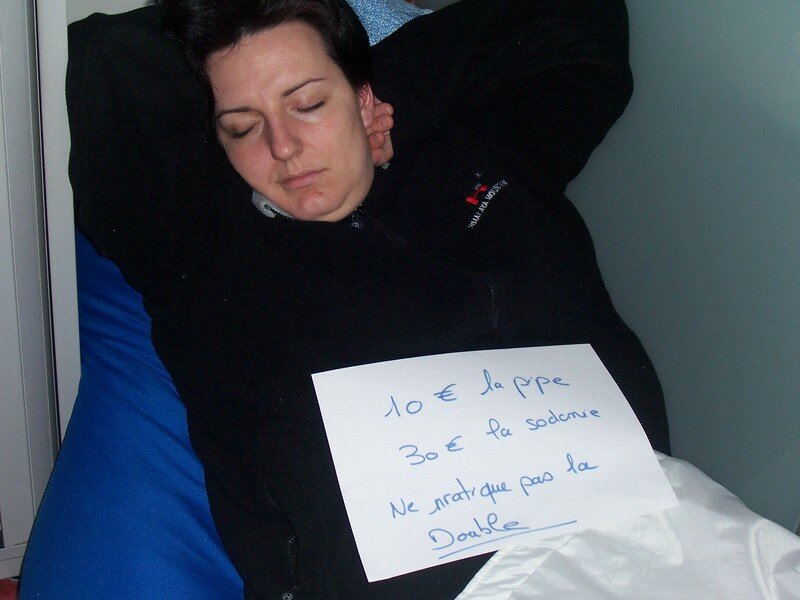 HIMALAYA MOUNTAIN
10 € la pipe
30 € la sodomie
Ne pratique pas la
Double